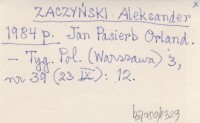 ZACZYŃSKI Aleksander
1984 p. Jan Pasierb Orland.
– Tyg. Pol. (Warszawa) 3,
nr 39 (23 IX): 12.